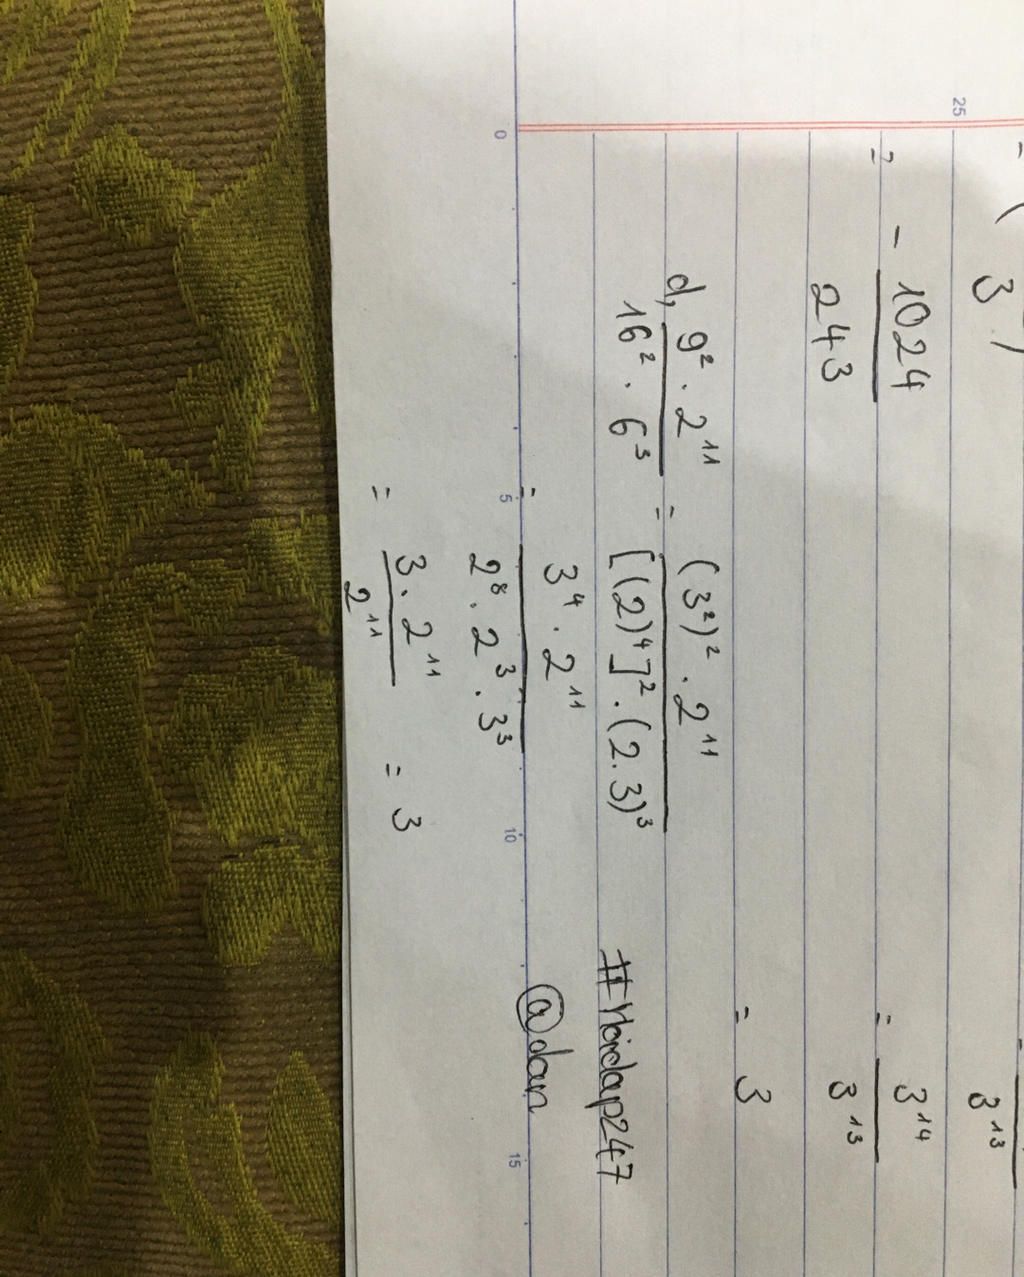 - ( 3 )
= - 1024 / 243
3¹³
= 3¹⁴ / 3¹³
= 3
d, 9² . 2¹¹ / 16² . 6³ = (3²)² . 2¹¹ / [(2)⁴]² . (2.3)³
= 3⁴ . 2¹¹ / 2⁸ . 2³ . 3³
= 3 . 2¹¹ / 2¹¹ = 3
#Hoidap247
@dan
25
0
5
10
15